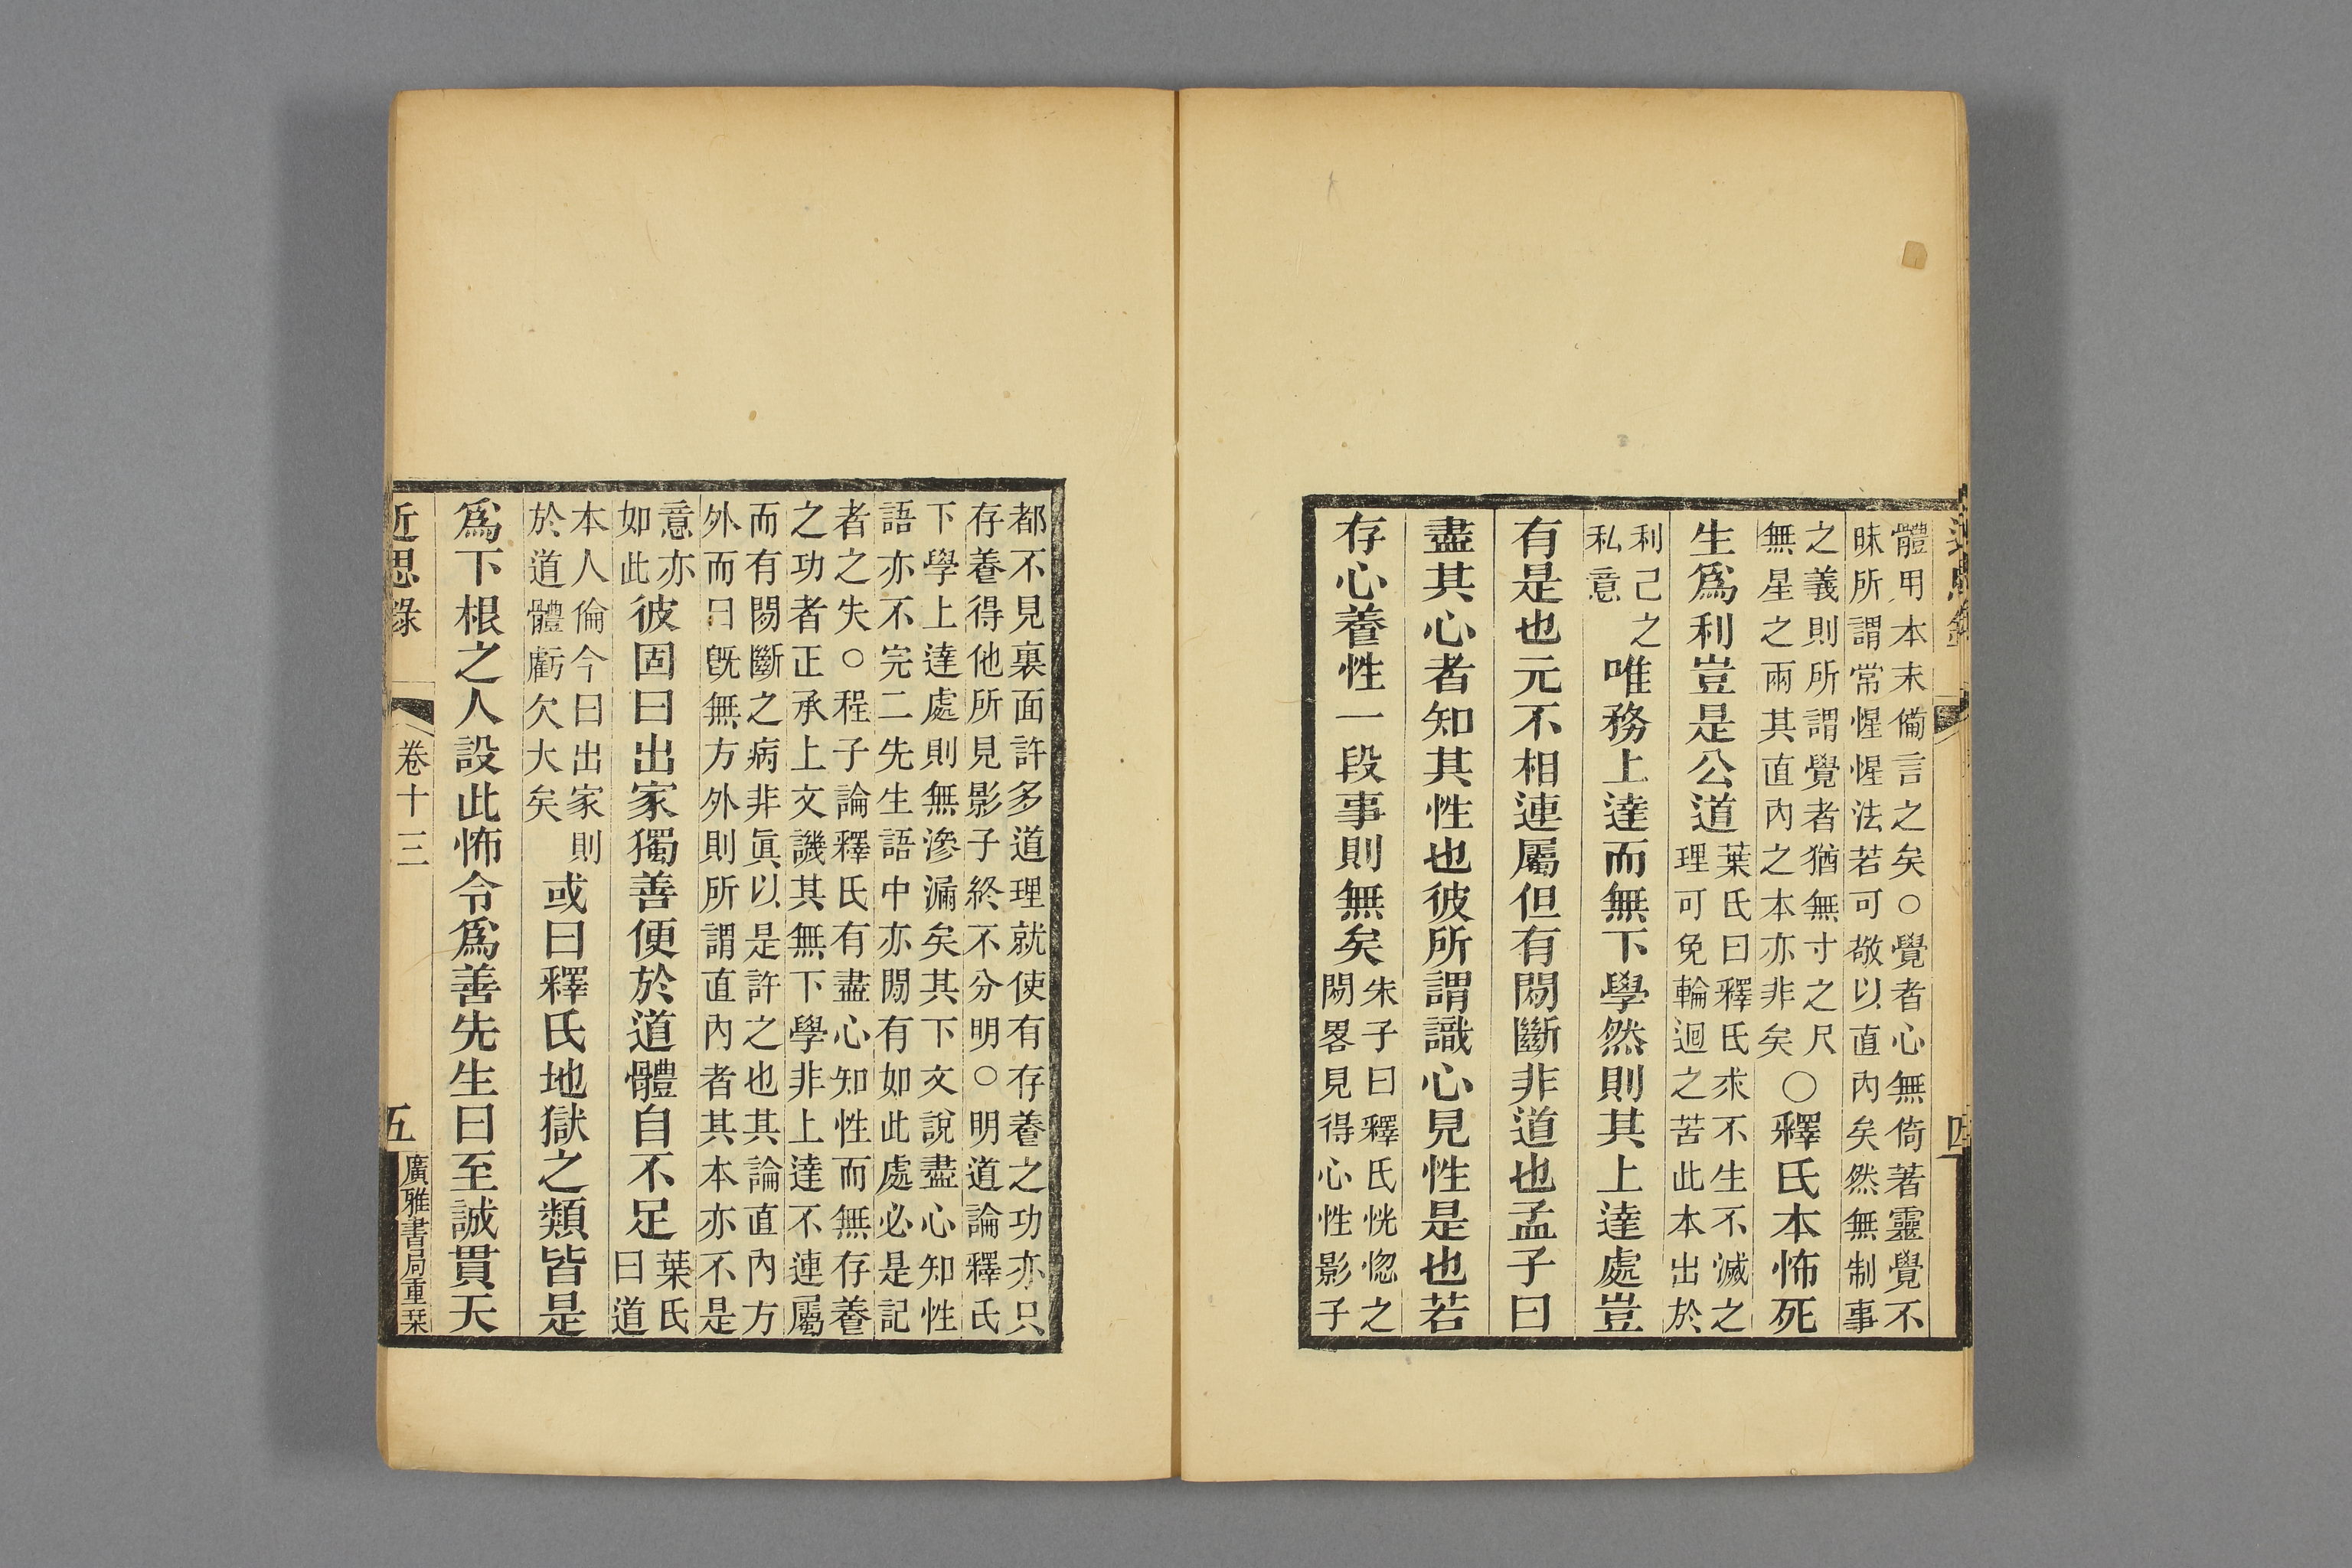 近思錄
四
體用本末備言之矣○覺者心無倚著靈覺不
昧所謂常惺惺法若可敬以直內矣然無制事
之義則所謂覺者猶無寸之尺
無星之兩其直內之本亦非矣
○釋氏本怖死
生爲利豈是公道
葉氏曰釋氏求不生不滅之
理可免輪迴之苦此本出於
利己之
私意
唯務上達而無下學然則其上達處豈
有是也元不相連屬但有閒斷非道也孟子曰
盡其心者知其性也彼所謂識心見性是也若
存心養性一段事則無矣
朱子曰釋氏恍惚之
閒畧見得心性影子
都不見裏面許多道理就使有存養之功亦只
存養得他所見影子終不分明○明道論釋氏
下學上達處則無滲漏矣其下文說盡心知性
語亦不完二先生語中亦閒有如此處必是記
者之失○程子論釋氏有盡心知性而無存養
之功者正承上文譏其無下學非上達不連屬
而有閒斷之病非眞以是許之也其論直內方
外而曰旣無方外則所謂直內者其本亦不是
意亦
如此
彼固曰出家獨善便於道體自不足
葉氏
曰道
本人倫今曰出家則
於道體虧欠大矣
或曰釋氏地獄之類皆是
爲下根之人設此怖令爲善先生曰至誠貫天
近思錄
卷十三
五
廣雅書局重栞